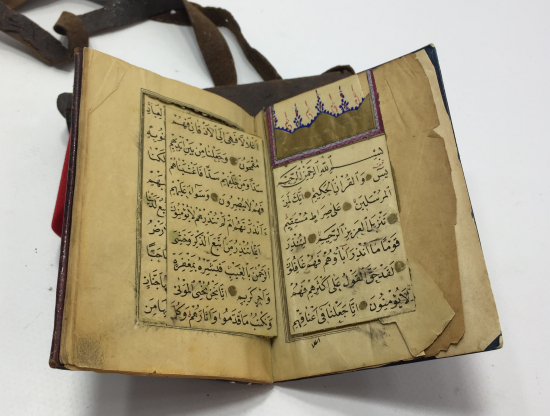 بِسْمِ اللّٰهِ الرَّحْمٰنِ الرَّحِيمِ
يٰسۤ وَالْقُرْاٰنِ الْحَكِيمِ اِنَّكَ لَمِنَ
الْمُرْسَلِينَ عَلٰى صِرَاطٍ مُسْتَقِيمٍ
تَنْزِيلَ الْعَزِيزِ الرَّحِيمِ لِتُنْذِرَ
قَوْمًا مَا اُنْذِرَ اٰبَاؤُهُمْ فَهُمْ غَافِلُونَ
لَقَدْ حَقَّ الْقَوْلُ عَلٰى اَكْثَرِهِمْ فَهُمْ
لَا يُؤْمِنُونَ اِنَّا جَعَلْنَا فِى اَعْنَاقِهِمْ
اَغْلَالًا فَهِىَ اِلَى الْاَذْقَانِ فَهُمْ
مُقْمَحُونَ وَجَعَلْنَا مِنْ بَيْنِ اَيْدِيهِمْ
سَدًّا وَمِنْ خَلْفِهِمْ سَدًّا فَاَغْشَيْنَاهُمْ
فَهُمْ لَا يُبْصِرُونَ وَسَوَاءٌ عَلَيْهِمْ
ءَاَنْذَرْتَهُمْ اَمْ لَمْ تُنْذِرْهُمْ لَا يُؤْمِنُونَ
اِنَّمَا تُنْذِرُ مَنِ اتَّبَعَ الذِّكْرَ وَخَشِىَ
الرَّحْمٰنَ بِالْغَيْبِ فَبَشِّرْهُ بِمَغْفِرَةٍ
وَاَجْرٍ كَرِيمٍ اِنَّا نَحْنُ نُحْيِى الْمَوْتٰى
وَنَكْتُبُ مَا قَدَّمُوا وَاٰثَارَهُمْ وَكُلَّ